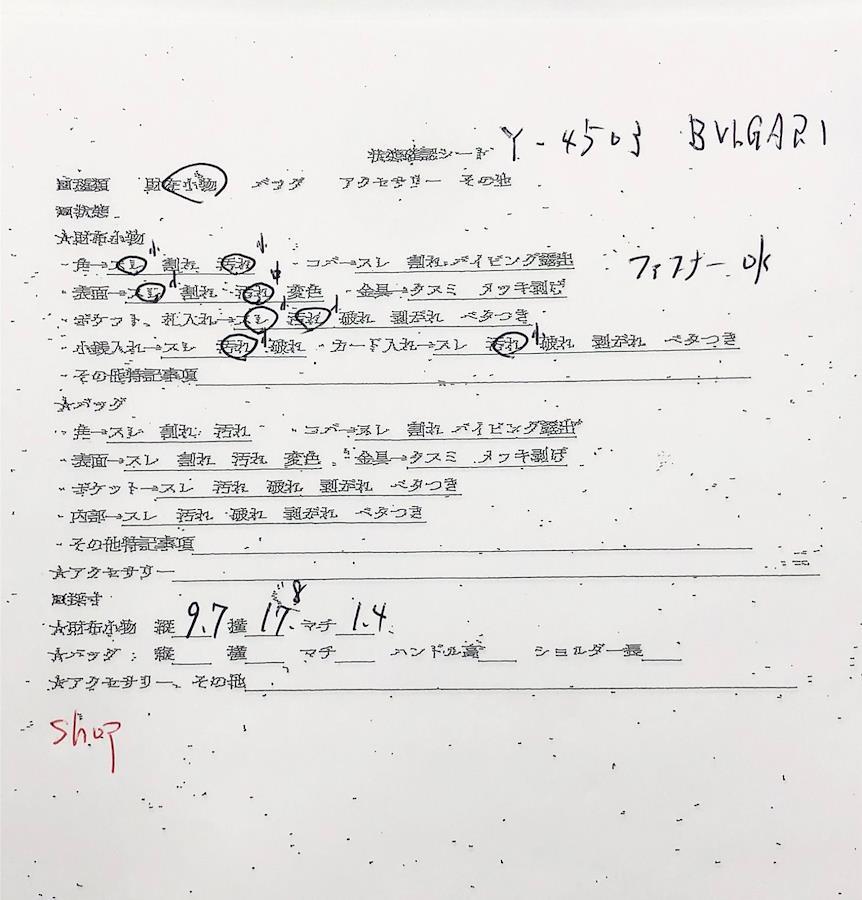 状態確認シート Y-4503 BVLGARI
□種類 財布小物 バッグ アクセサリー その他
□状態
☆財布小物
・角→スレ小 割れ 汚れ小 ・コバ→スレ 割れ パイピング露出 ファスナーOK
・表面→スレ小 割れ 汚れ中 変色 ・金具→クスミ メッキ剥げ
・ポケット、札入れ→スレ小 汚れ小 破れ 剥がれ ベタつき
・小銭入れ→スレ 汚れ小 破れ ・カード入れ→スレ 汚れ小 破れ 剥がれ ベタつき
・その他特記事項
☆バッグ
・角→スレ 割れ 汚れ ・コバ→スレ 割れ パイピング露出
・表面→スレ 割れ 汚れ 変色 ・金具→クスミ メッキ剥げ
・ポケット→スレ 汚れ 破れ 剥がれ ベタつき
・内部→スレ 汚れ 破れ 剥がれ ベタつき
・その他特記事項
☆アクセサリー
□採寸
☆財布小物 縦 9.7 横 17.8 マチ 1.4
☆バッグ:縦 横 マチ ハンドル高 ショルダー長
☆アクセサリー、その他
shop